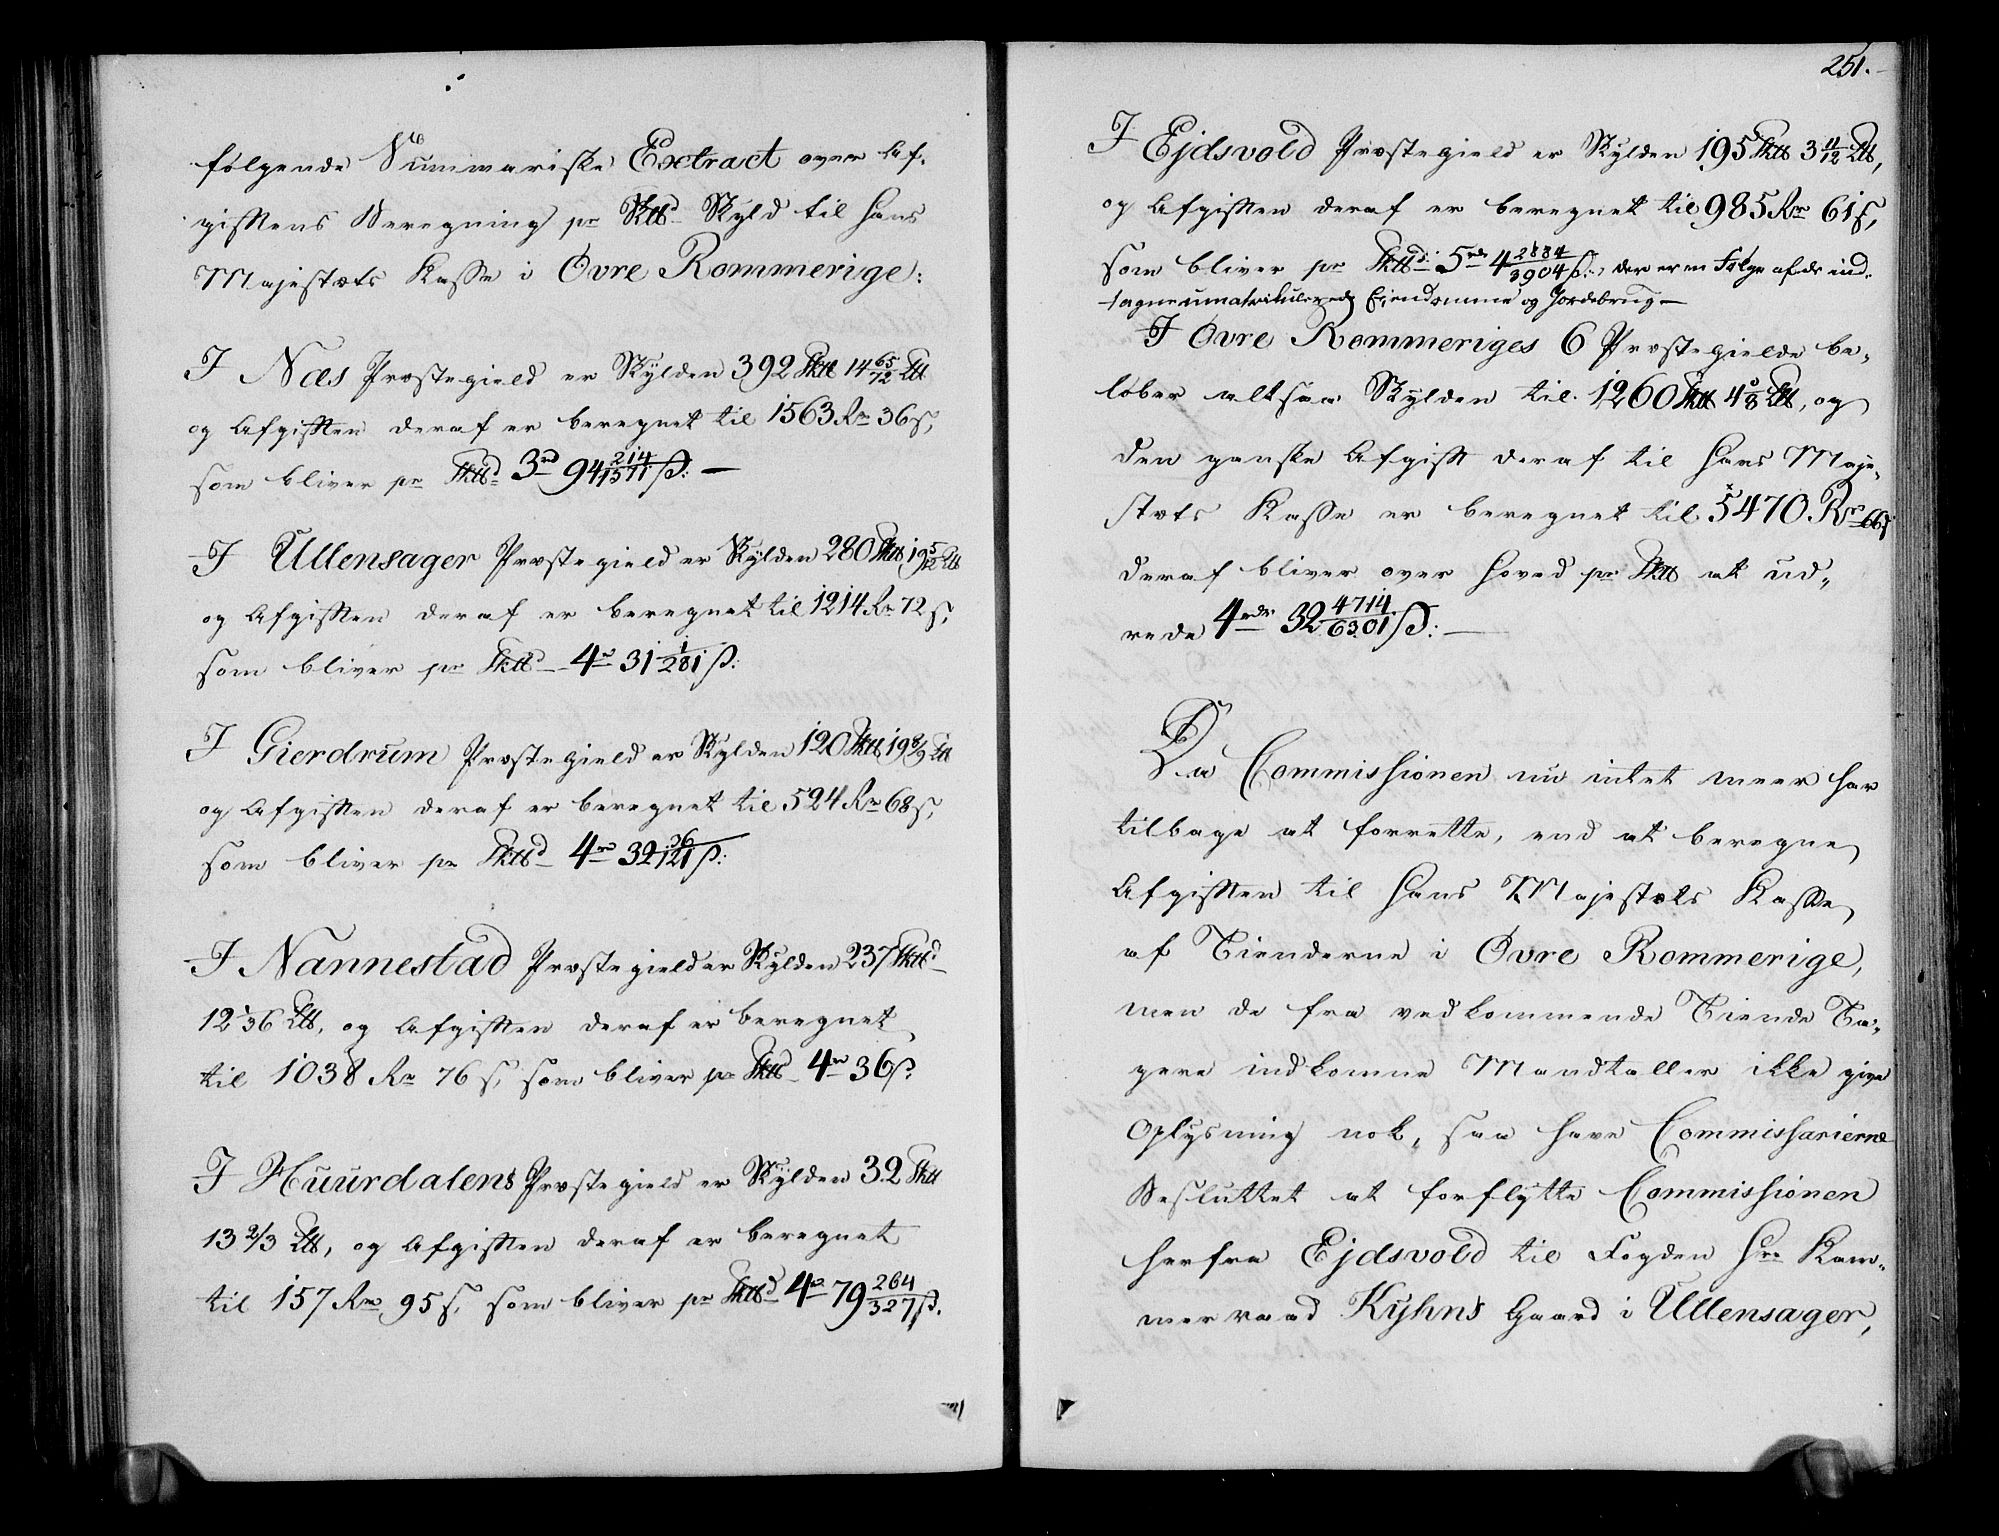 følgende Summariske Extract over Af-
giftens Beregning pr Sktd Skyld til Hans
Majestæts Kasse i Øvre Rommerige:
I Næs Præstegield er Skylden 392 Sktt 14 65/72 Ltt
og Afgiften deraf er beregnet til 1563 Rr 36 s,
som bliver pr Skttd 3rd 94 214/1571 s: —
I Ullensager Præstegield er Skylden 280 Sktt 19 5/12 Ltt
og Afgiften deraf er beregnet til 1214 Rr 72 s,
som bliver pr Skttd 4r 31 1/281 s:
I Gierdrum Præstegield er Skylden 120 Sktt 19 8/9 Ltt
og Afgiften deraf er beregnet til 524 Rr 68 s,
som bliver pr Skttd 4rd 32 36/121 s:
I Nannestad Præstegield er Skylden 237 Skttd
12 1/36 Ltt, og Afgiften deraf er beregnet
til 1038 Rr 76 s, som bliver pr Skttd 4rd 36 s:
I Huurdalens Præstegield er Skylden 32 Sktt
13 2/3 Ltt, og Afgiften deraf er beregnet
til 157 Rr 95 s, som bliver pr Skttd 4rd 79 264/327 s.
251.
I Ejdsvold Præstegield er Skylden 195 Sktt 3 11/12 Ltt,
og Afgiften deraf er beregnet til 985 Rr 61 s,
som bliver pr Skttd 5rdr 4 2884/3904 s:, der er en Følge af de ind-
tagne umatrikulerede Eiendomme og Jordebrug —
I Øvre Rommeriges 6 Præstegielde be-
løber altsaa Skylden til 1260 Sktt 4 5/8 Ltt, og
den ganske Afgift deraf til Hans Maje-
stæts Kasse er beregnet til 5470 Rr 66 s
deraf bliver over Hoved pr Sktt at ud-
rede 4rdr 32 4714/6301 s: —
Da Commissionen nu intet meer har
tilbage at forrette, end at beregne
Afgiften til Hans Majestæts Kasse
af Tienderne i Øvre Rommerige,
men de fra vedkommende Tiende Ta-
gere indkomne Mandtaller ikke give
Oplysning nok, saa have Commissarierne
Besluttet at forflytte Commissionen
herfra Ejdsvold til Fogden Hrr Kam-
merraad Kyhns Gaard i Ullensager,